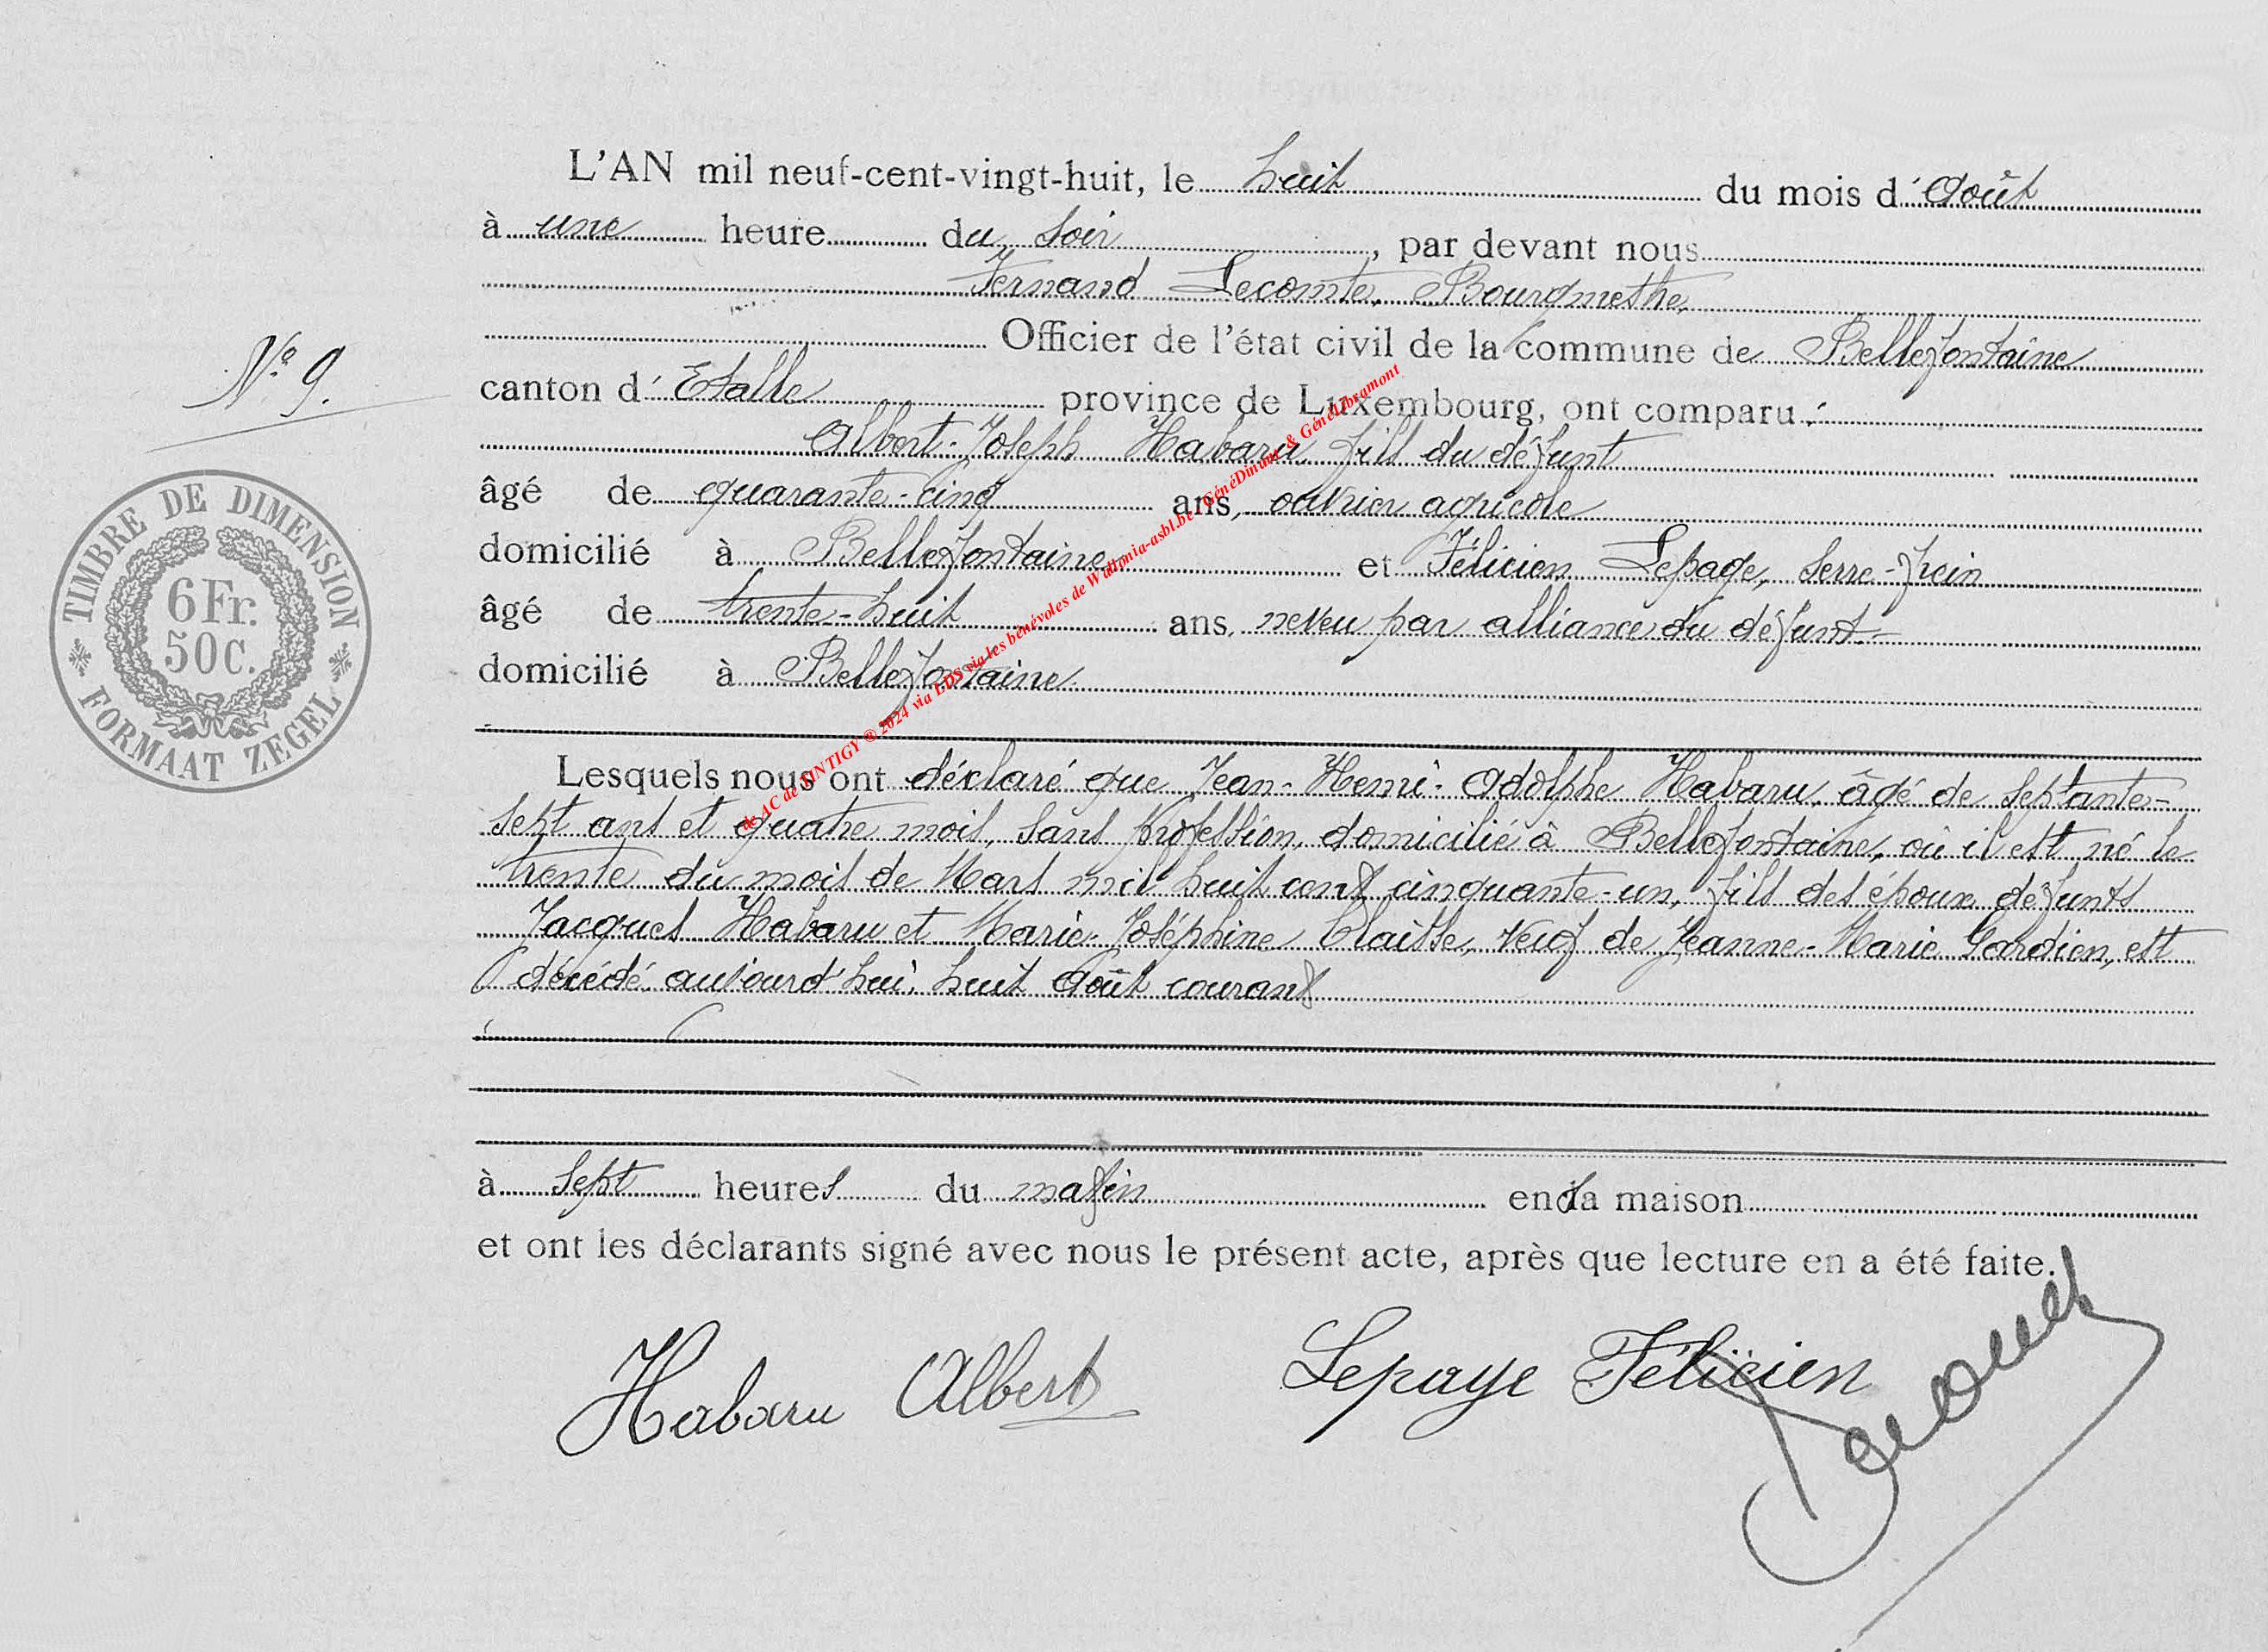 L'AN mil neuf-cent-vingt-huit, le huit du mois d'Août
à une heure du soir, par devant nous
Fernand Lecomte, Bourgmestre,
Officier de l'état civil de la commune de Bellefontaine
N° 9.
canton d'Etalle province de Luxembourg, ont comparu :
Albert-Joseph Habaru, fils du défunt
âgé de quarante-cinq ans, ouvrier agricole
domicilié à Bellefontaine et Félicien Lepage, serre-frein
âgé de trente-huit ans, neveu par alliance du défunt
domicilié à Bellefontaine
TIMBRE DE DIMENSION
6 Fr.
50 C.
FORMAAT ZEGEL
Lesquels nous ont déclaré que Jean-Henri-Adolphe Habaru, âgé de septante-
sept ans et quatre mois, sans profession, domicilié à Bellefontaine, où il est né le
trente du mois de Mars mil huit cent cinquante-un, fils des époux défunts
Jacques Habaru et Marie-Joséphine Claisse, veuf de Jeanne-Marie Gardien, est
décédé aujourd'hui, huit Août courant
à sept heures du matin en sa maison
et ont les déclarants signé avec nous le présent acte, après que lecture en a été faite.
Habaru Albert Lepage Félicien
de AC de TINTIGY ® 2024 via LDS via les bénévoles de Wallonia-asbl.be - GénéDinant & GénéLibramont